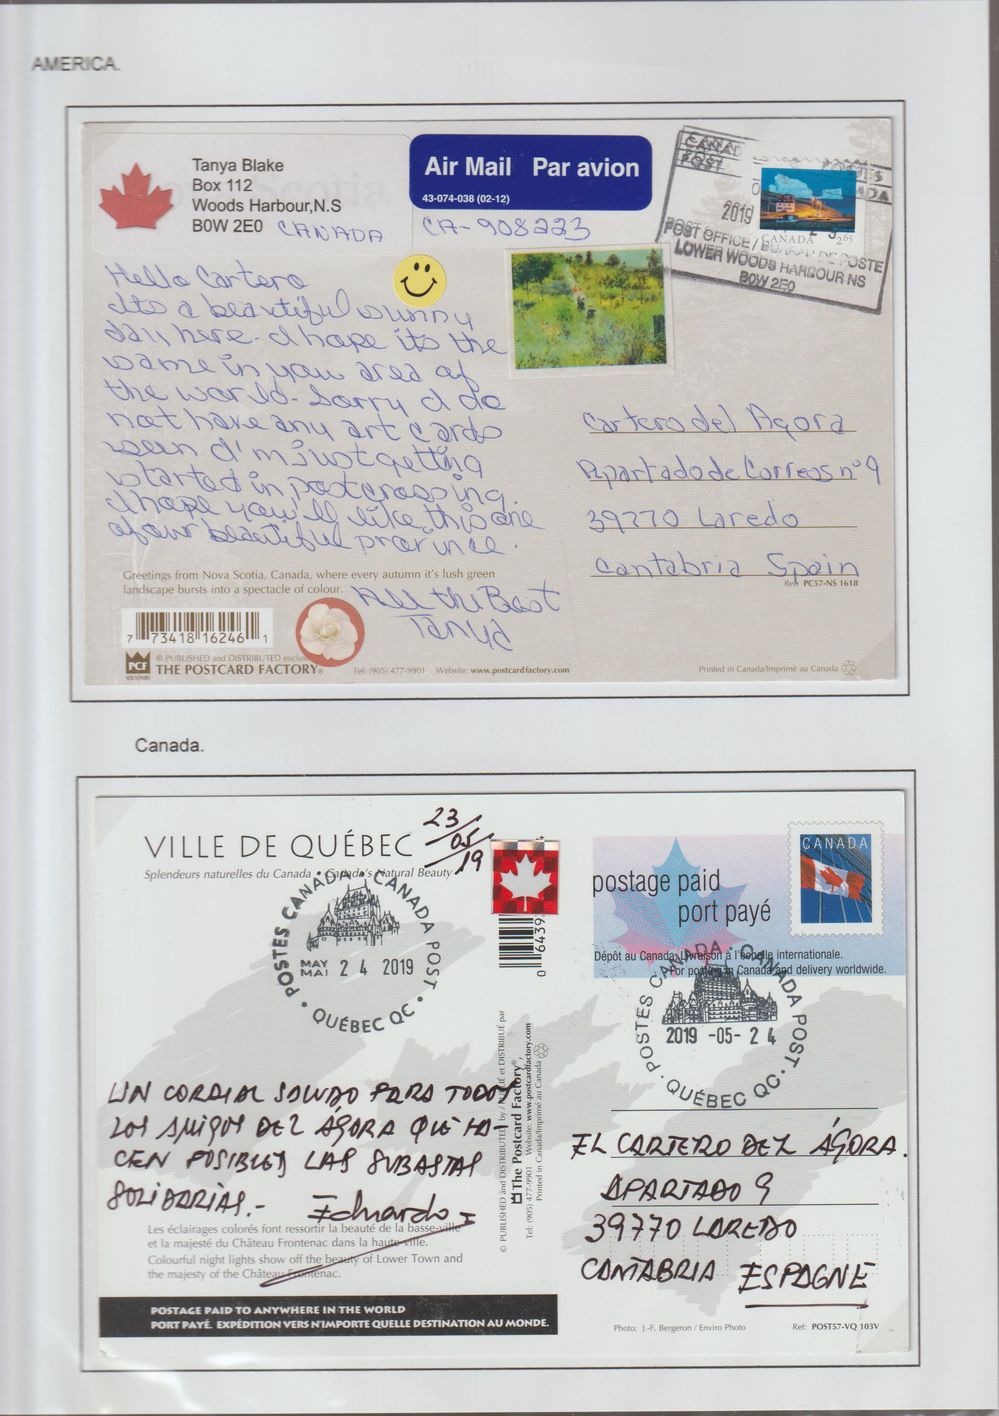 AMERICA.
Tanya Blake
Box 112
Woods Harbour,N.S
B0W 2E0 CANADA
Air Mail Par avion
43-074-038 (02-12)
CA-908223
CANADA
POST
POSTES
CANADA
2019
CANADA 2.65
POST OFFICE / BUREAU DE POSTE
LOWER WOODS HARBOUR NS
B0W 2E0
Hello Cartero
Its a beautiful sunny
day here. I hope its the
same in your area of
the world. Sorry I do
not have any art cards
seen I'm just getting
started in postcrossing.
I hope you'll like this one
of our beautiful province.
All the Best
Tanya
Cartero del Agora
Apartado de Correos nº 9
39770 Laredo
Cantabria Spain
Ref: PC57-NS 1618
Greetings from Nova Scotia, Canada, where every autumn it's lush green
landscape bursts into a spectacle of colour.
7 73418 16246 1
PCF
SOUVENIRS
© PUBLISHED and DISTRIBUTED
THE POSTCARD FACTORY®
Tel: (905) 477-9901 Website: www.postcardfactory.com
Printed in Canada/Imprimé au Canada
Canada.
VILLE DE QUÉBEC
Splendeurs naturelles du Canada • Canada's Natural Beauty
23/05/19
POSTES CANADA • CANADA POST
MAY
MAI 24 2019
QUÉBEC QC
UN CORDIAL SALUDO PARA TODOS
LOS AMIGOS DEL ÁGORA QUE HA-
CEN POSIBLES LAS SUBASTAS
SOLIDARIAS.- Eduardo
Les éclairages colorés font ressortir la beauté de la basse-ville
et la majesté du Château Frontenac dans la haute-ville.
Colourful night lights show off the beauty of Lower Town and
the majesty of the Château Frontenac.
POSTAGE PAID TO ANYWHERE IN THE WORLD
PORT PAYÉ. EXPÉDITION VERS N'IMPORTE QUELLE DESTINATION AU MONDE.
0 6439
© PUBLISHED and DISTRIBUTED by / PUBLIÉ et DISTRIBUÉ par
The Postcard Factory®
Tel: (905) 477-9901 Website: www.postcardfactory.com
Printed in Canada/Imprimé au Canada
postage paid
port payé
CANADA
Dépôt au Canada. Livraison à l'échelle internationale.
For posting in Canada and delivery worldwide.
POSTES CANADA • CANADA POST
2019 -05- 24
QUÉBEC QC
EL CARTERO DEL ÁGORA.
APARTADO 9
39770 LAREDO
CANTABRIA ESPAGNE
Photo: J.-F. Bergeron / Enviro Photo
Ref: POST57-VQ 103V